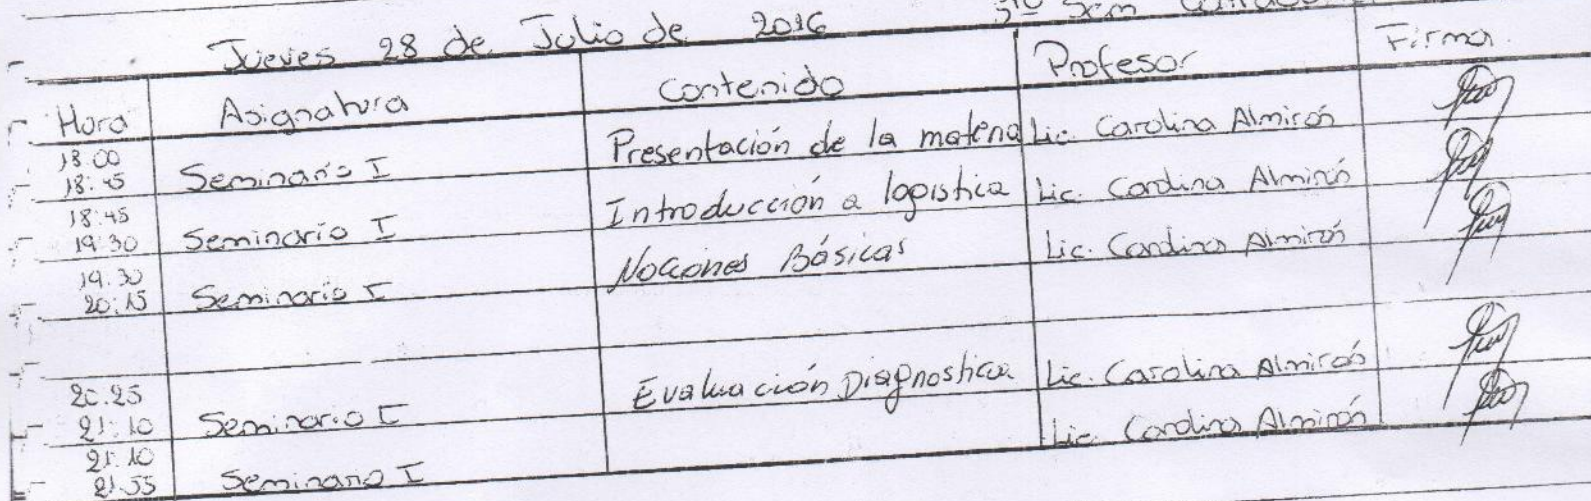 Jueves 28 de Julio de 2016 5to Sem
Hora Asignatura Contenido Profesor Firma
18:00
18:45 Seminario I Presentación de la materia Lic. Carolina Almirón
18:45
19:30 Seminario I Introducción a logistica Lic. Carolina Almirón
19:30
20:15 Seminario I Nociones Básicas Lic. Carolina Almirón
20:25
21:10 Seminario I Evaluación Diagnostica Lic. Carolina Almirón
21:10
21:55 Seminario I Lic. Carolina Almirón